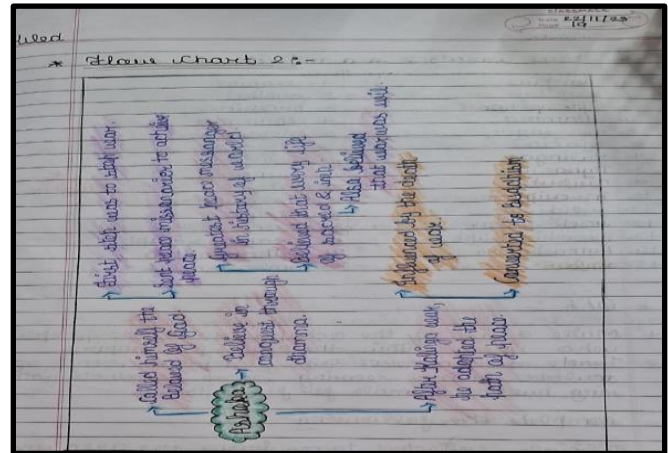 classmate
Date 22/11/23
Page 19
* Flow Chart 2:-
Ashoka
Called himself the
Beloved of God
Believe in
conquest through
dhamma.
After Kalinga war,
he adopted the
path of peace.
First step was to stop war.
Sent peace missionaries to achieve
peace.
Greatest peace messanger
in history of world
Believed that every life
is sacred &
Also believed
that war was evil.
Influenced by the
of war.
Conversion to Buddhism